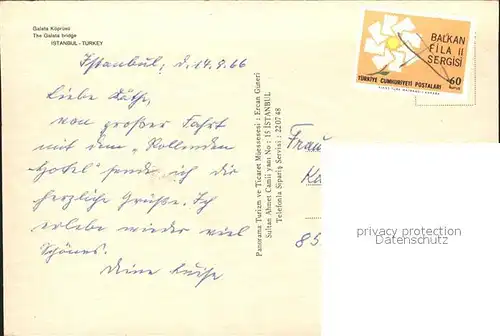 Galata Köprüsü
The Galata bridge
ISTANBUL - TURKEY
Istanbul, d. 14.9.66
Liebe Käthe,
von großer Fahrt
mit dem „Rollenden
Hotel" sende ich die
herzliche Grüße. Ich
erlebe wieder viel
Schönes.
Deine Luise
Panorama Turizm ve Ticaret Müessesesi : Ercan Guneri
Sultan Ahmet Camii yanı No : 15 İSTANBUL
Telefonla Sipariş Servisi : 22 07 48
BALKAN
FİLA II
SERGİSİ
60
kuruş
TÜRKİYE CUMHURİYETİ POSTALARI
Frau
85
privates Angebot
Disclaimer